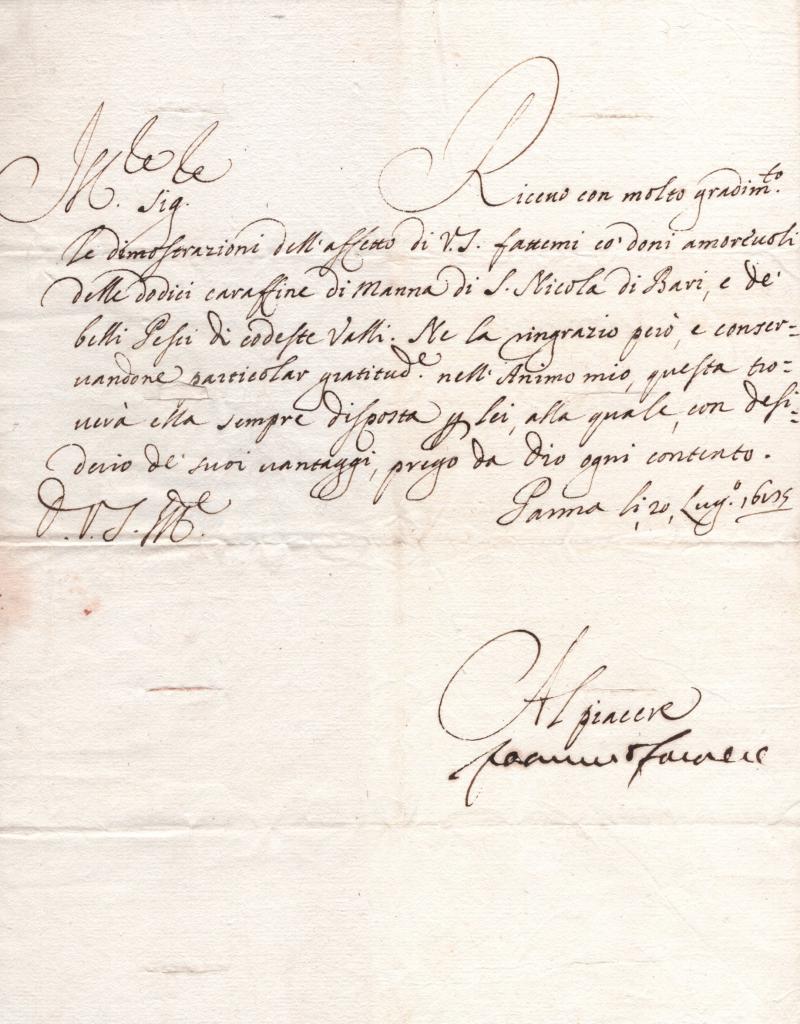 M. Sig.
Riceuo con molto gradim.to
le dimostrazioni dell'affetto di V.S. fattemi co' doni amoreuoli
delle dodici caraffine di Manna di S. Nicola di Bari, e de'
belli Pesci di codeste Valli. Ne la ringrazio però, e conser=
uandone particolar gratitud.e nell'Animo mio, questa tro=
uerà ella sempre disposta p lei, alla quale, con desi=
derio de' suoi vantaggi, prego da Dio ogni contento.
D. V. S.
Parma li, 20, Lug.o
Al piacere